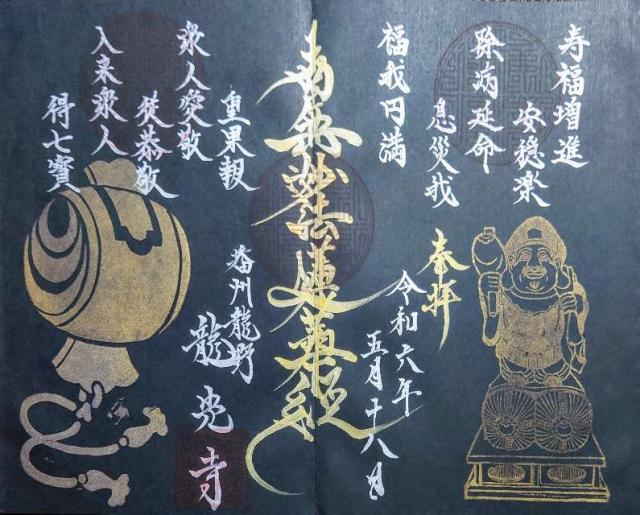 寿福増進
安穏楽
除病延命
息災我
福我円満
奉拝
令和六年
五月十八日
南無妙法蓮華経
重果報
衆人愛敬
従恭敬
入来衆人
得七寳
播州龍野
龍光寺